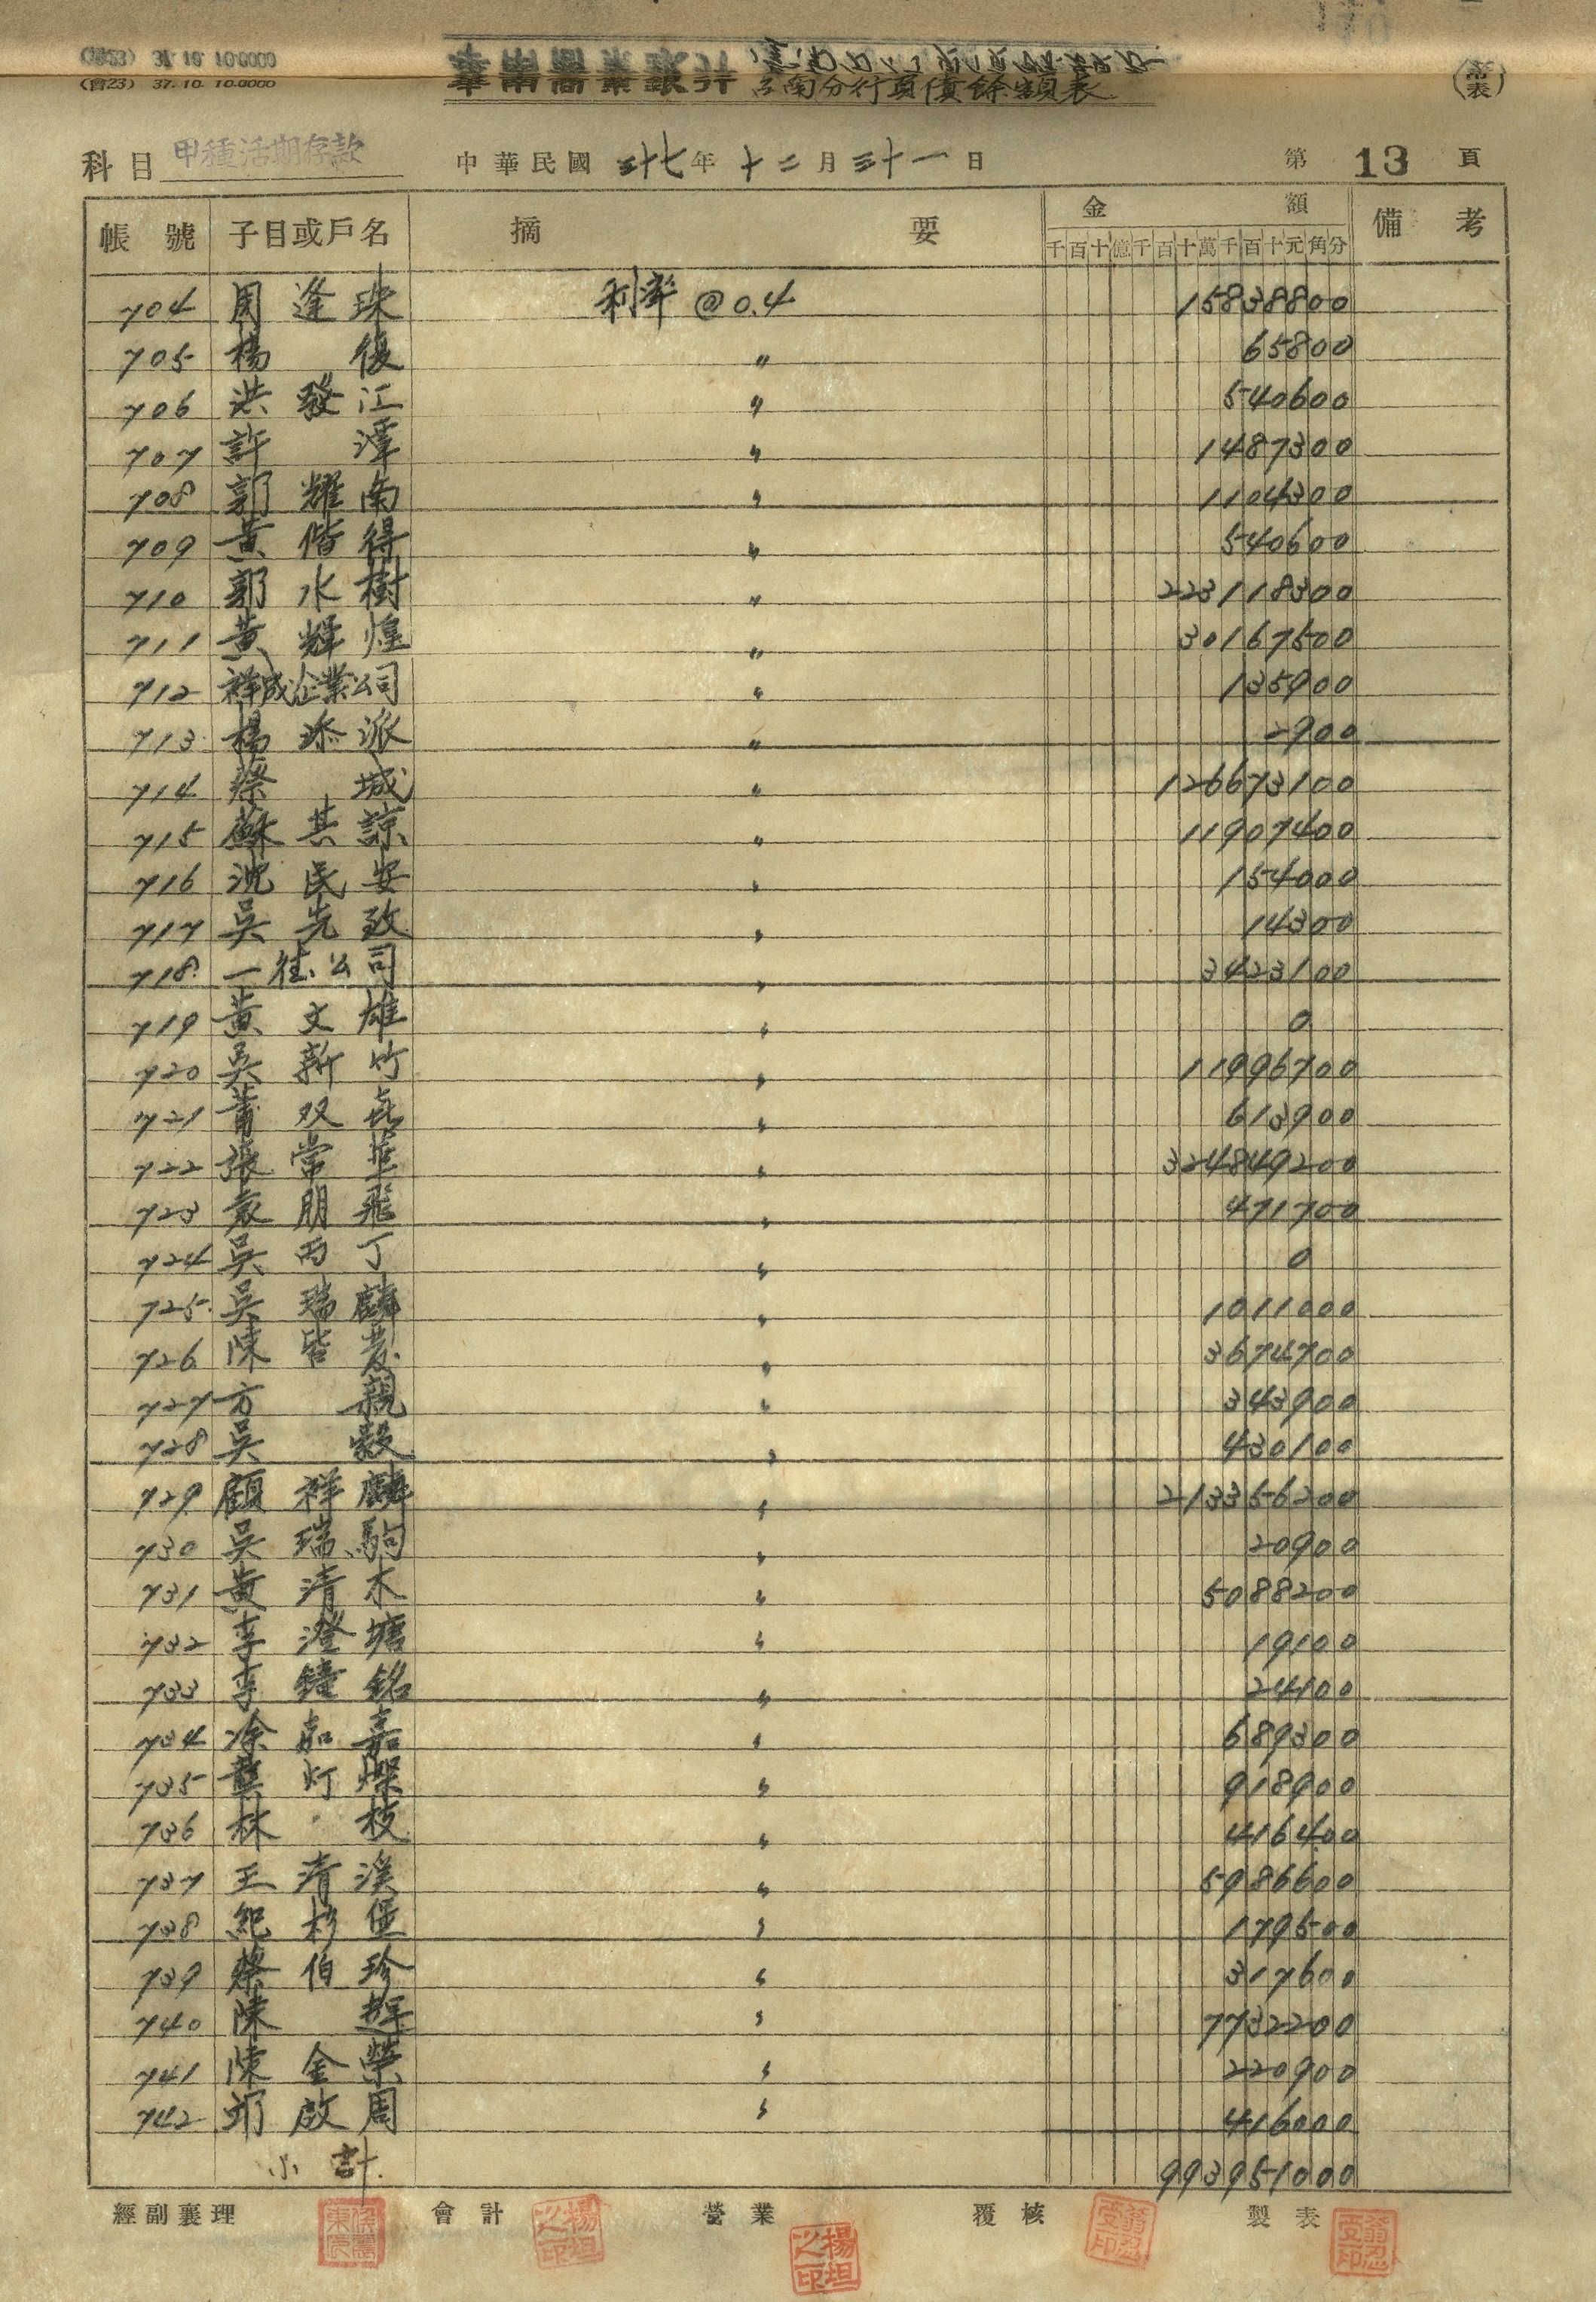 (會23) 37.10.10.0000
(會23) 37.10.10.0000
華南商業銀行 台南分行負債餘額表 (表)
科目 甲種活期存款 中華民國 三十七年 十二月 三十一日 第 13 頁
帳號 子目或戶名 摘要 金額 備考
千百十億千百十萬千百十元角分
704 周逢珠 利率 @0.4 15838800
705 楊復 〃 65800
706 洪發江 〃 540600
707 許澤 〃 1487300
708 郭耀南 〃 1104300
709 黃偕得 〃 540600
710 郭水樹 〃 223118300
711 黃輝煌 〃 30167500
712 祥成企業公司 〃 135900
713 楊添派 〃 2900
714 蔡城 〃 126673100
715 蘇其諒 〃 11907400
716 沈民安 〃 154000
717 吳先致 〃 14300
718 一德公司 〃 3423100
719 黃文雄 〃 0
720 吳新竹 〃 11996700
721 莆双㐂 〃 613900
722 張常華 〃 324849200
723 袁朋飛 〃 471700
724 吳丙丁 〃 0
725 吳瑞麟 〃 1011000
726 陳皆發 〃 3674700
727 方親 〃 343900
728 吳穀 〃 430100
729 顧祥麟 〃 213356200
730 吳瑞駒 〃 20900
731 黃清木 〃 5088200
732 李澄塘 〃 19100
733 李鐘銘 〃 24100
734 涂嘉 〃 689300
735 龔灯燦 〃 918900
736 林枝 〃 416400
737 王清溪 〃 5986600
738 紀杉堡 〃 179500
739 蔡伯珍 〃 317600
740 陳 〃 7732200
741 陳金榮 〃 220900
742 邓啟周 〃 416000
小計 993951000
經副襄理 會計 營業 覆核 製表
楊坦之印
楊坦之印